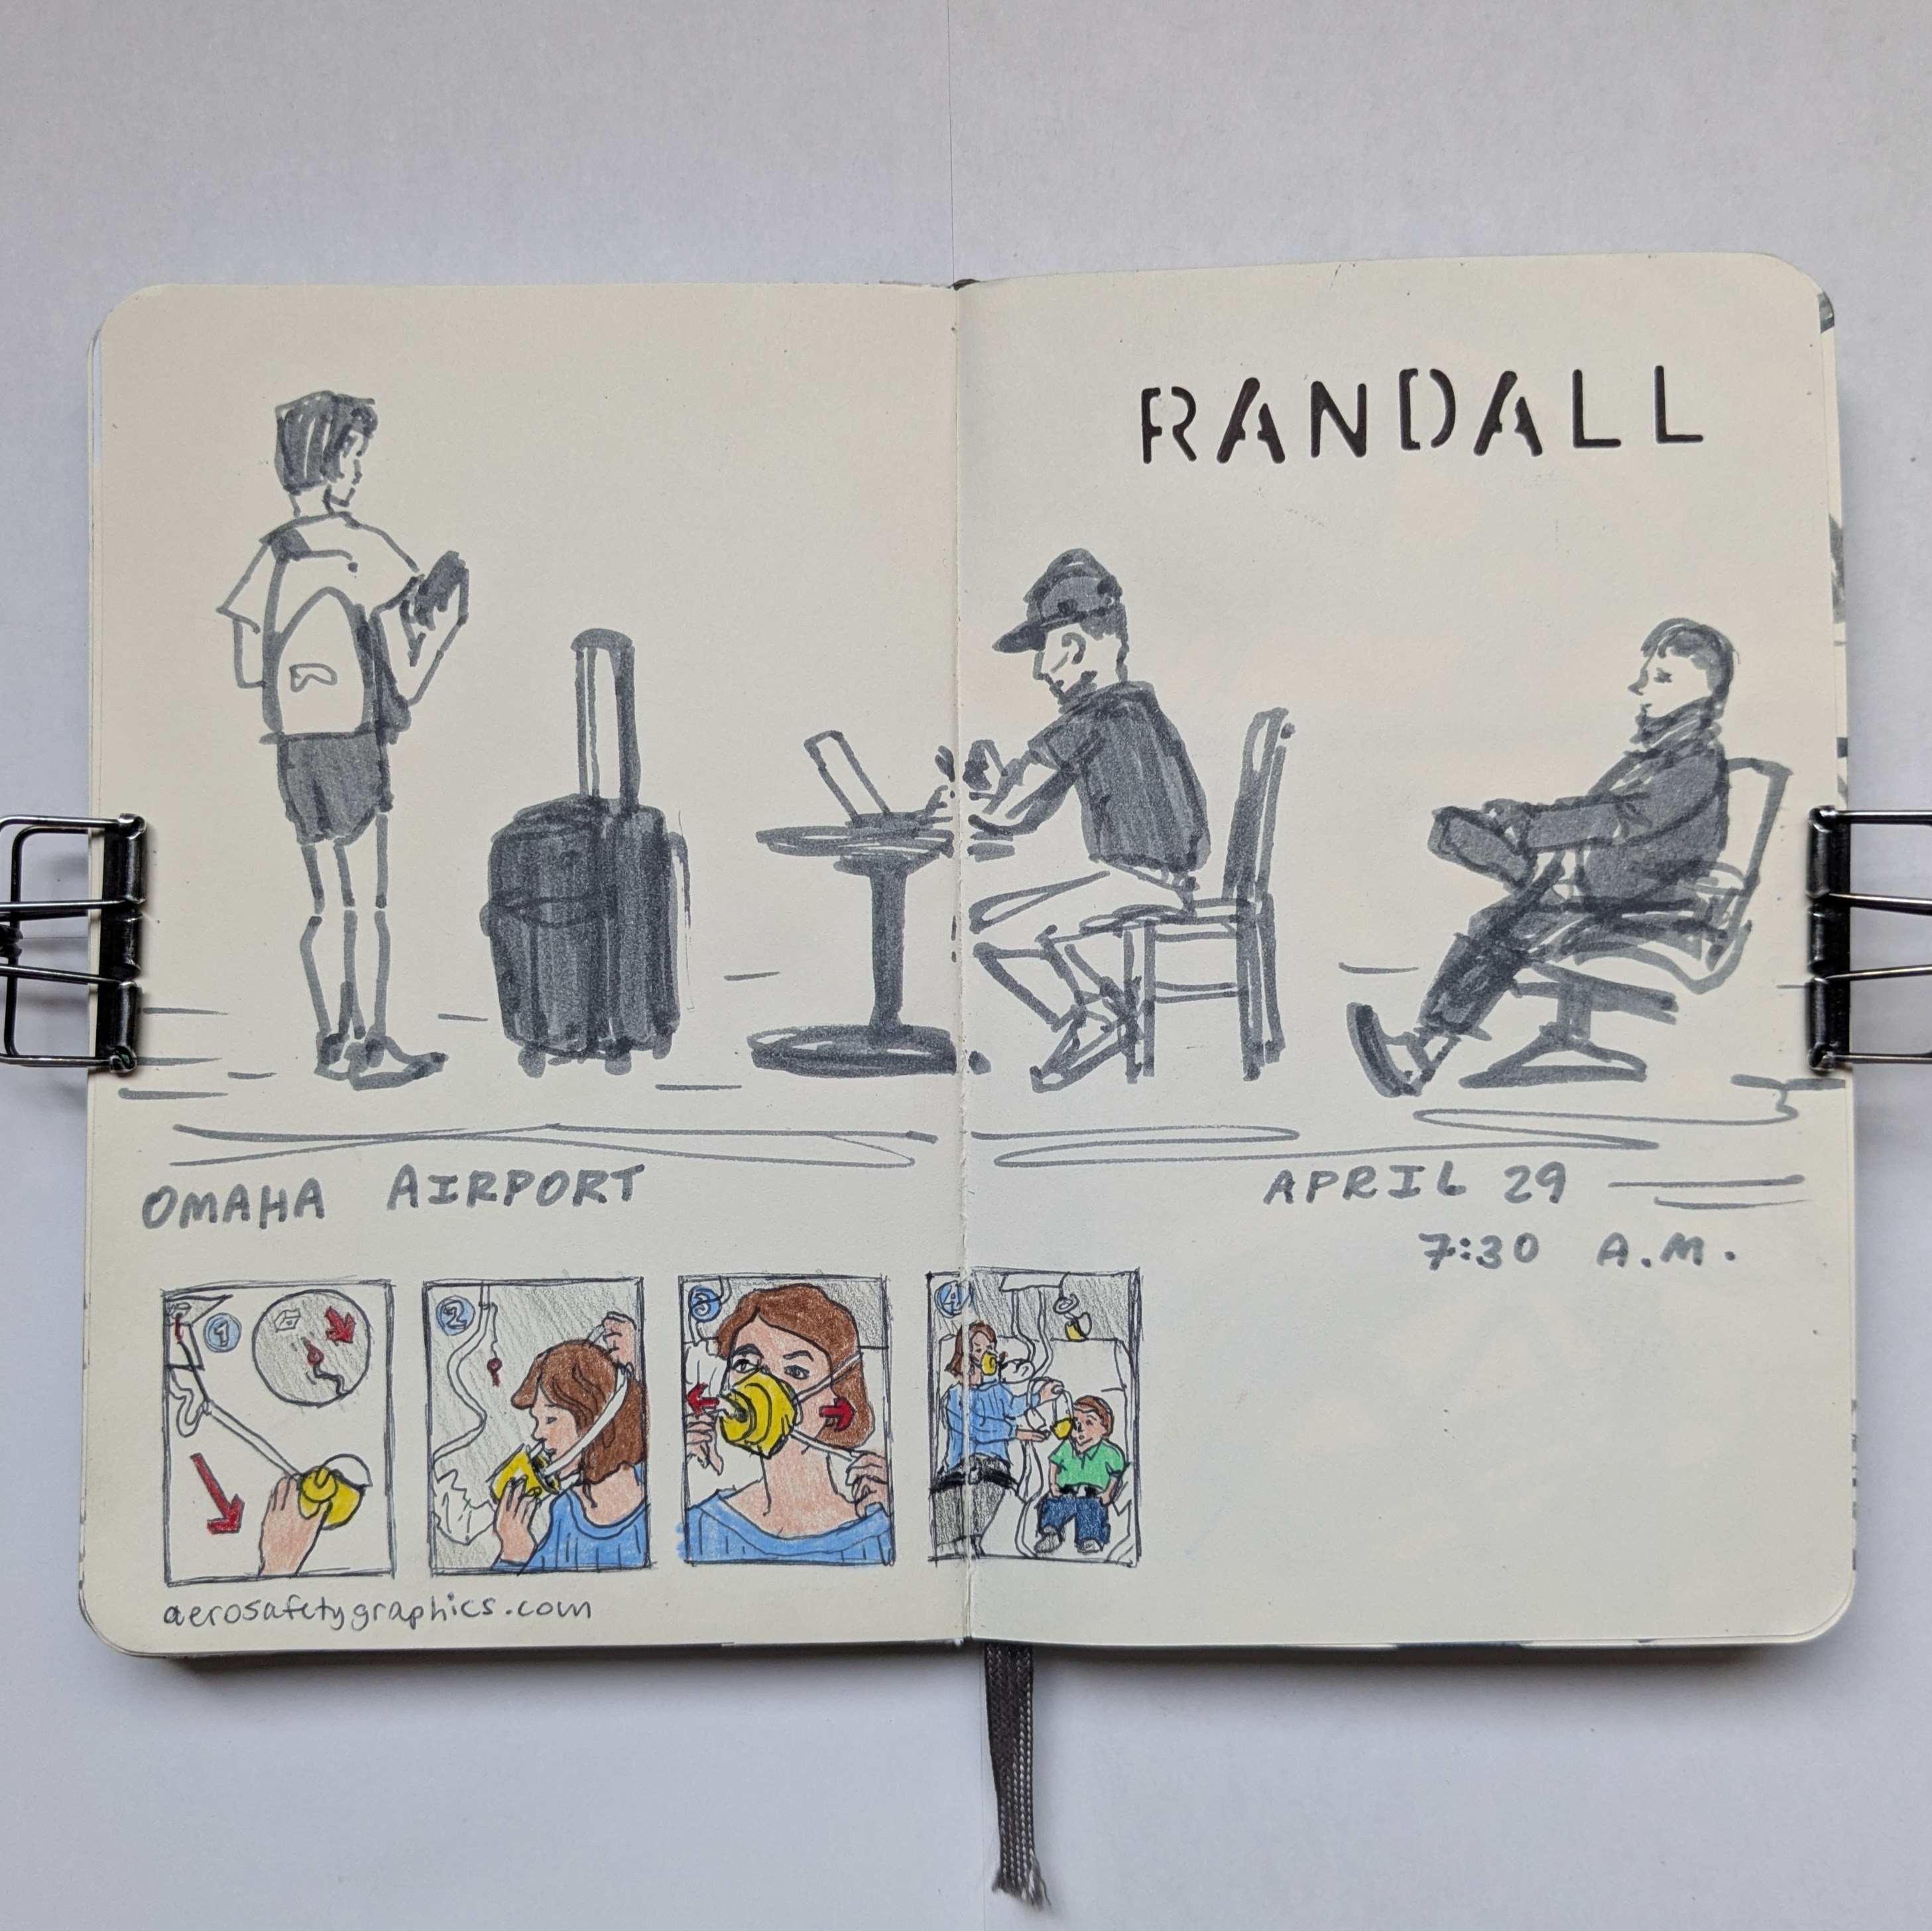 RANDALL
OMAHA AIRPORT
APRIL 29
7:30 A.M.
1
2
3
4
aerosafetygraphics.com